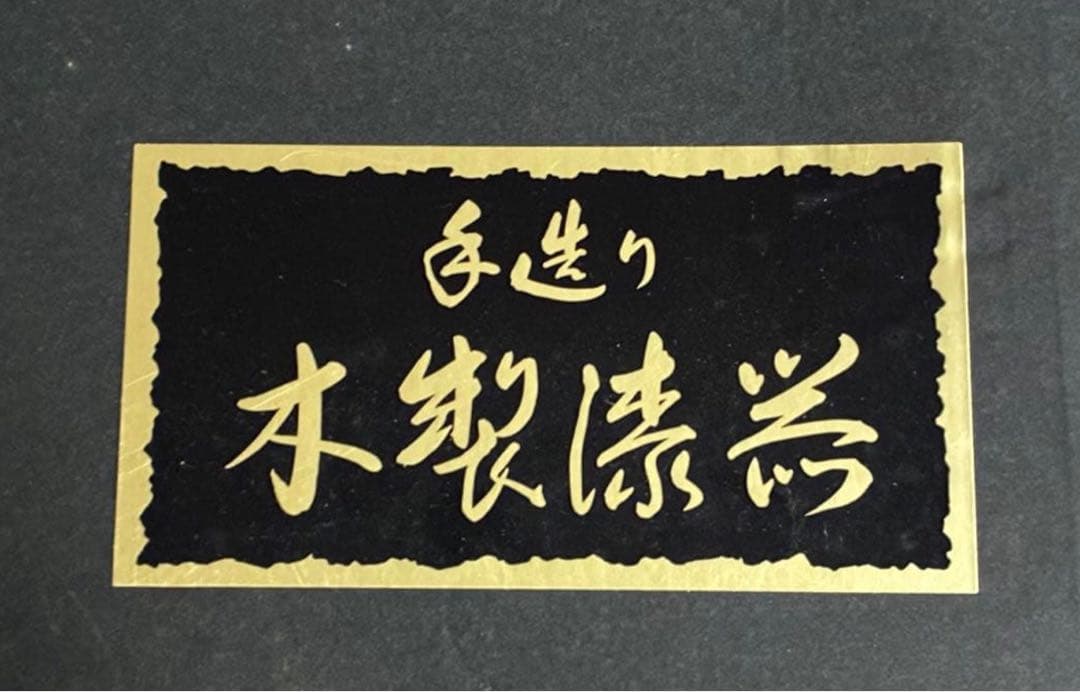 手造り
木製漆器